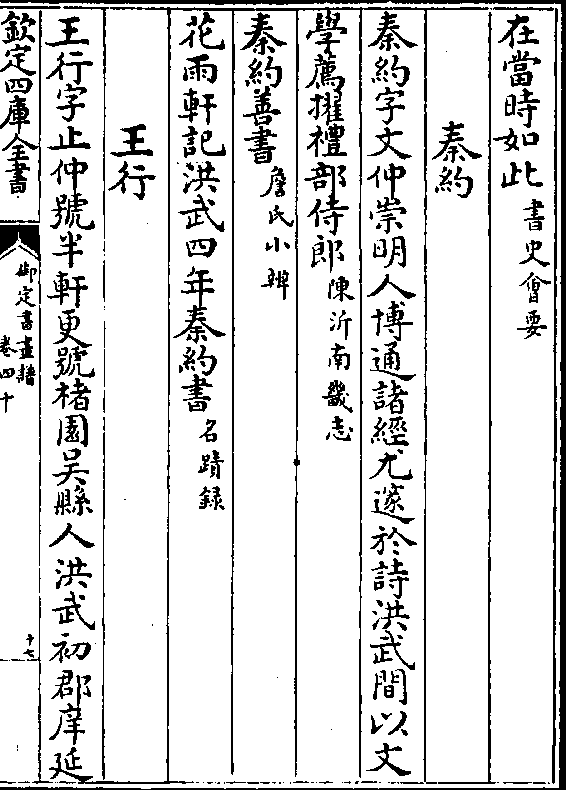 在當時如此書史會要
秦約
秦約字文仲崇明人博通諸經尤邃於詩洪武間以文
學薦擢禮部侍郎陳沂南畿志
秦約善書詹氏小辨
花雨軒記洪武四年秦約書名蹟錄
王行
王行字止仲號半軒更號楮園吳縣人洪武初郡庠延
欽定四庫全書
御定書畫譜
卷四十
十七